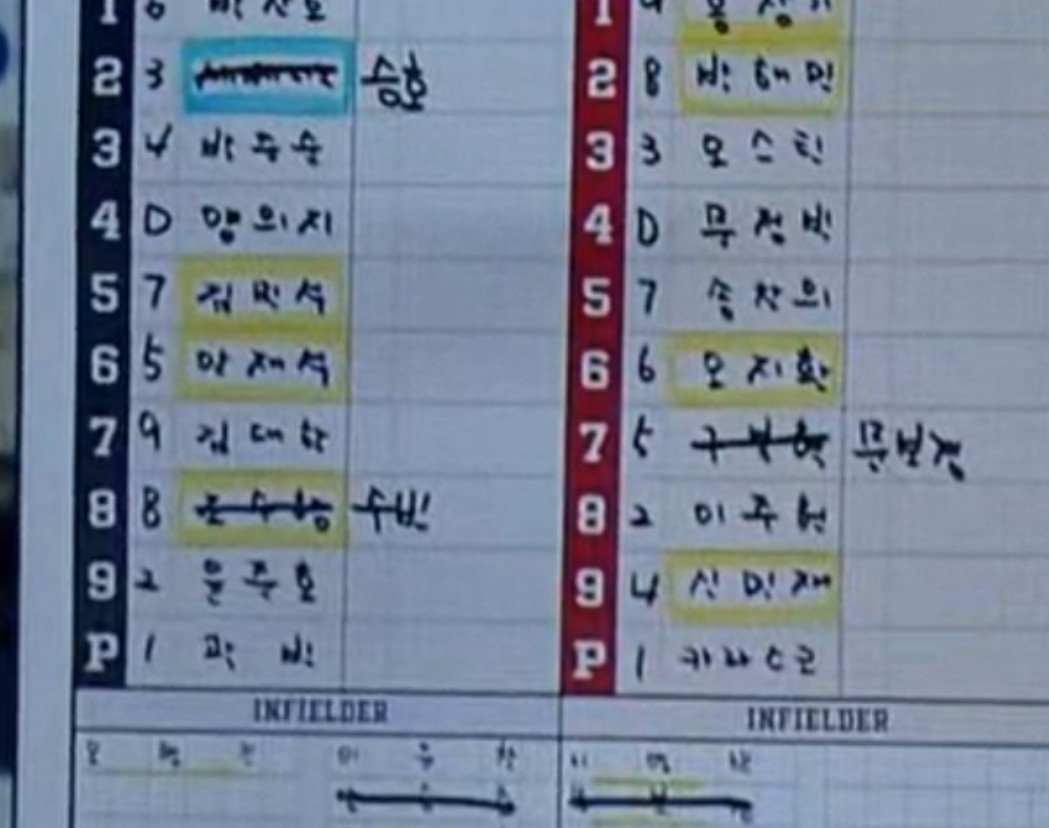 1 6 박찬호
2 3 승호
3 4 박준순
4 D 양의지
5 7 김민석
6 5 안재석
7 9 김대한
8 8 수빈
9 2 윤준호
P 1 곽빈
INFIELDER
1 9 홍창기
2 8 박해민
3 3 오스틴
4 D 문정빈
5 7 송찬의
6 6 오지환
7 5 구본혁 문보경
8 2 이주헌
9 4 신민재
P 1
INFIELDER